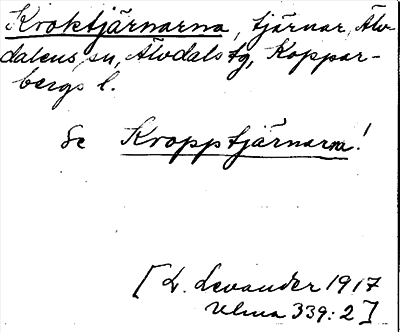 Kroktjärnarna, tjärnar, Älv-
dalens sn, Älvdals tg, Koppar-
bergs l.
Se Kropptjärnarna!
[L. Levander 1917
Ulma 339:2]